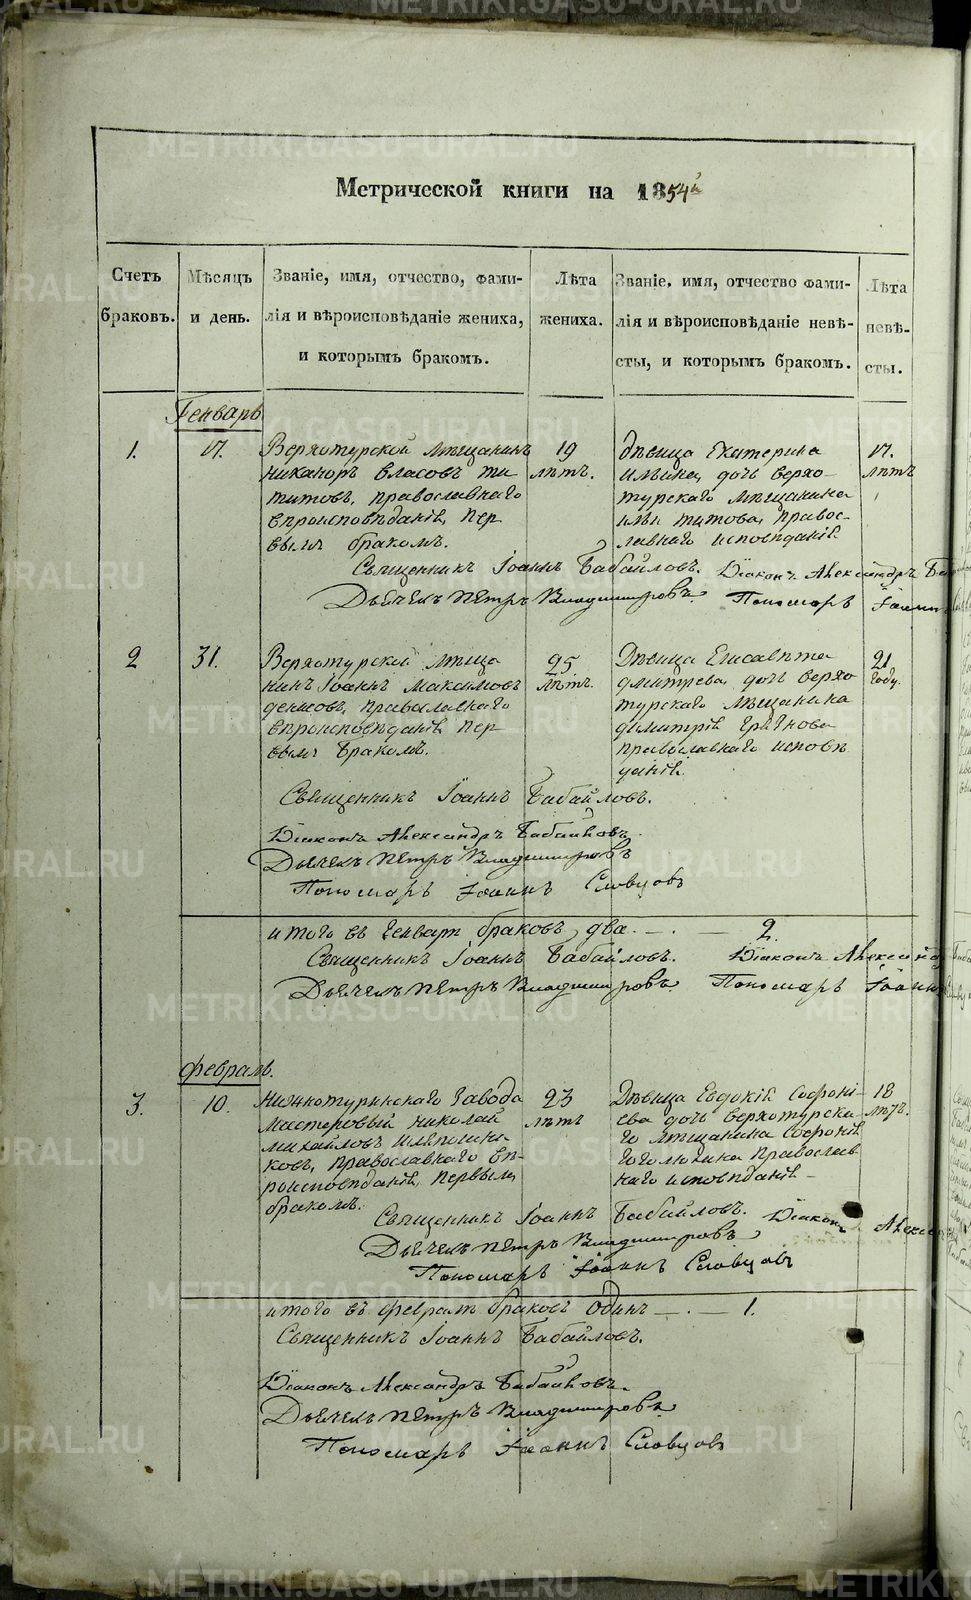 Метрической книги на 1854й
Счетъ браковъ.
Мѣсяцъ и день.
Званіе, имя, отчество, фами-
лія и вѣроисповѣданіе жениха,
и которымъ бракомъ.
Лѣта жениха.
Званіе, имя, отчество фами-
лія и вѣроисповѣданіе невѣ-
сты, и которымъ бракомъ.
Лѣта невѣ-
сты.
Генварь
1.
17.
Верхотурской мѣщанинъ
Никаноръ Власовъ Ти
титовъ, православнаго
вѣроисповѣданія, пер
вымъ бракомъ.
19
лѣтъ.
Дѣвица Екатерина
Ильина, дочь верхо-
турскаго мѣщанина
Ильи Титова, правос-
лавнаго исповѣданія
17.
лѣтъ
Священникъ Іоаннъ Бабайловъ. Діаконъ Александръ
Дьячекъ Петръ Владимировъ. Пономарь Іоаннъ
2
31.
Верхотурской мѣща
нинъ Іоаннъ Максимовъ
Денисовъ, православнаго
вѣроисповѣданія, пер
вымъ бракомъ.
25
лѣтъ.
Дѣвица Елисавета
Дмитрева, дочь верхо
турскаго мѣщанина
Димитрія
православнаго исповѣ
данія.
21
году.
Священникъ Іоаннъ Бабайловъ.
Діаконъ Александръ Бабайловъ
Дьячекъ Петръ Владимировъ
Пономарь Іоаннъ Словцовъ
итого въ Генварѣ браковъ два. — . — 2.
Священникъ Іоаннъ Бабайловъ. Діаконъ Александръ
Дьячекъ Петръ Владимировъ. Пономарь Іоаннъ
Февраль.
3.
10.
Нижнотуринскаго завода
мастеровый Николай
Михайловъ
ковъ, православнаго вѣ-
роисповѣданія, первымъ
бракомъ.
23
лѣтъ
Дѣвица Евдокія Софоні-
ева дочь верхотурска-
го мѣщанина Софонія
Гоголюхина православ-
наго исповѣданія —
18
лѣтъ.
Священникъ Іоаннъ Бабайловъ. Діаконъ
Дьячекъ Петръ Владимировъ
Пономарь Іоаннъ Словцовъ
итого въ Февралѣ браковъ одинъ — . 1.
Священникъ Іоаннъ Бабайловъ.
Діаконъ Александръ Бабайловъ.
Дьячекъ Петръ Владимировъ
Пономарь Іоаннъ Словцовъ
METRIKI.GASO-URAL.RU